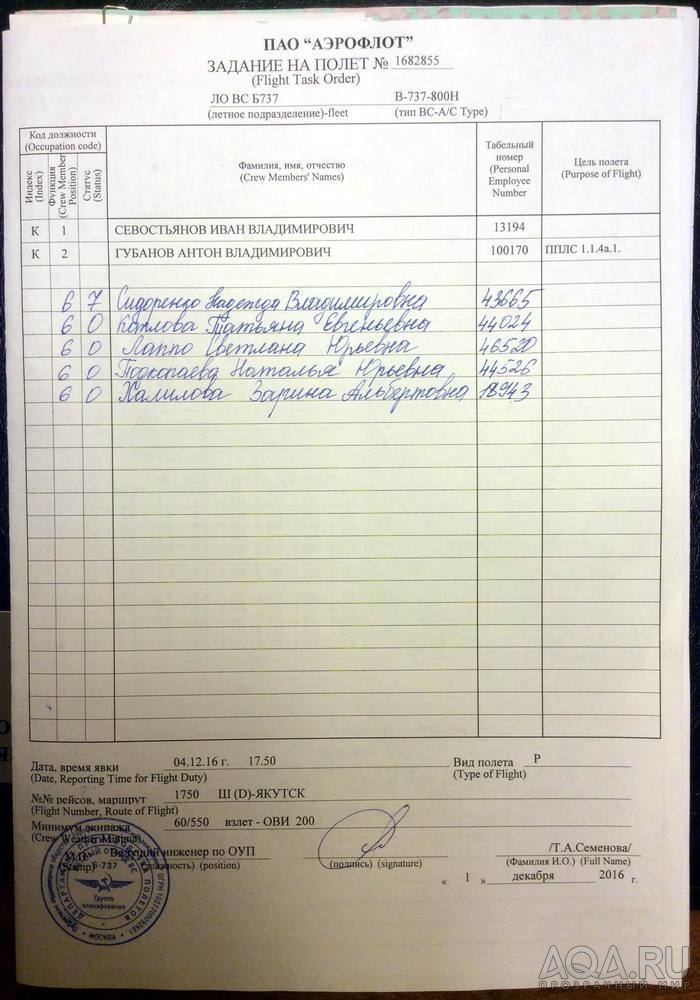 ПАО “АЭРОФЛОТ”
ЗАДАНИЕ НА ПОЛЕТ № 1682855
(Flight Task Order)
ЛО ВС Б737 В-737-800Н
(летное подразделение)-fleet (тип ВС-A/C Type)
Код должности (Occupation code)
Индекс (Index)
Функция (Crew Member Position)
Статус (Status)
Фамилия, имя, отчество (Crew Members' Names)
Табельный номер (Personal Employee Number
Цель полета (Purpose of Flight)
К 1 СЕВОСТЬЯНОВ ИВАН ВЛАДИМИРОВИЧ 13194
К 2 ГУБАНОВ АНТОН ВЛАДИМИРОВИЧ 100170 ППЛС 1.1.4а.1.
6 7 Сидоренко Надежда Владимировна 43665
6 0 Котлова Татьяна Евгеньевна 44024
6 0 Лаппо Светлана Юрьевна 46520
6 0 Подкопаева Наталья Юрьевна 44526
6 0 Халилова Зарина Альбертовна 18943
Дата, время явки 04.12.16 г. 17.50 Вид полета Р
(Date, Reporting Time for Flight Duty) (Type of Flight)
№№ рейсов, маршрут 1750 Ш (D)-ЯКУТСК
(Flight Number, Route of Flight)
Минимум экипажа 60/550 взлет - ОВИ 200
(Crew Weather Minima)
М.П. Ведущий инженер по ОУП /Т.А.Семенова/
(Stamp) (должность) (position) (подпись) (signature) (Фамилия И.О.) (Full Name)
« 1 » декабря 2016 г.
Б-737
Группа планирования
МОСКВА
AQA.RU
ПРОЗРАЧНЫЙ МИР